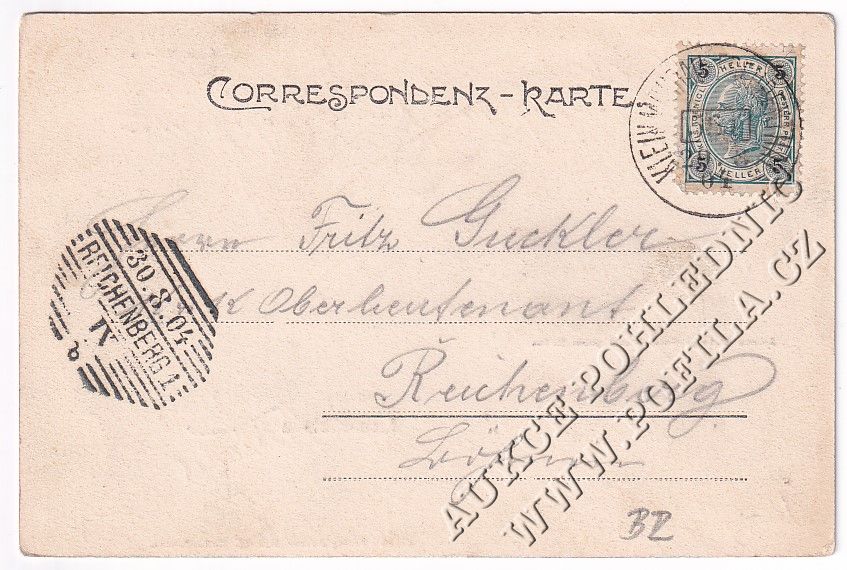 CORRESPONDENZ-KARTE
KLEIN
04
5 HELLER 5
5 HELLER 5
Herrn Fritz Guckler
k k Oberleutenant
Reichenberg
Böhmen
REICHENBERG 1.
30.8.04
IX
b
BZ
AUKCE POHLEDNIC
WWW.POFILA.CZ